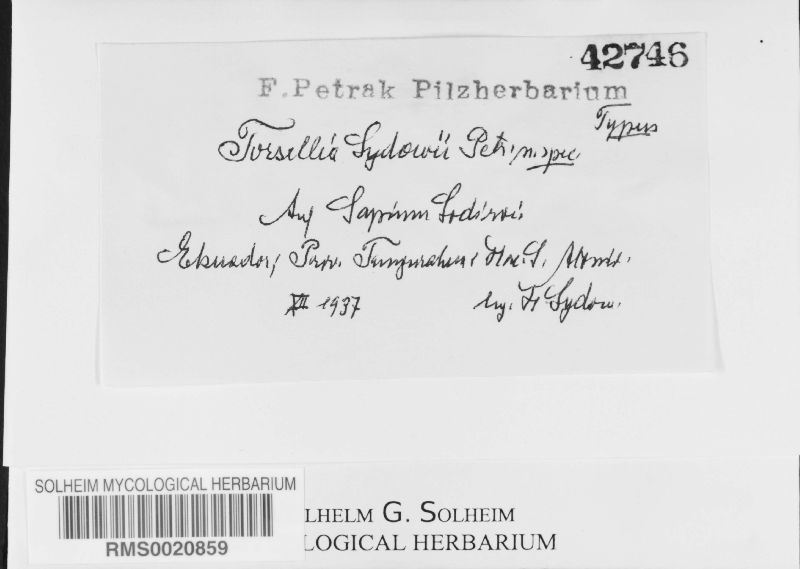 42746
F. Petrak Pilzherbarium
Typus
Torsellia Sydowii Petr. n. spec.
Auf Sapium Sodiroi
Ekuador; Prov. Tungurahua: Hac. S. Antonio.
XII 1937 leg. H. Sydow.
SOLHEIM MYCOLOGICAL HERBARIUM
RMS0020859
LHELM G. SOLHEIM
LOGICAL HERBARIUM